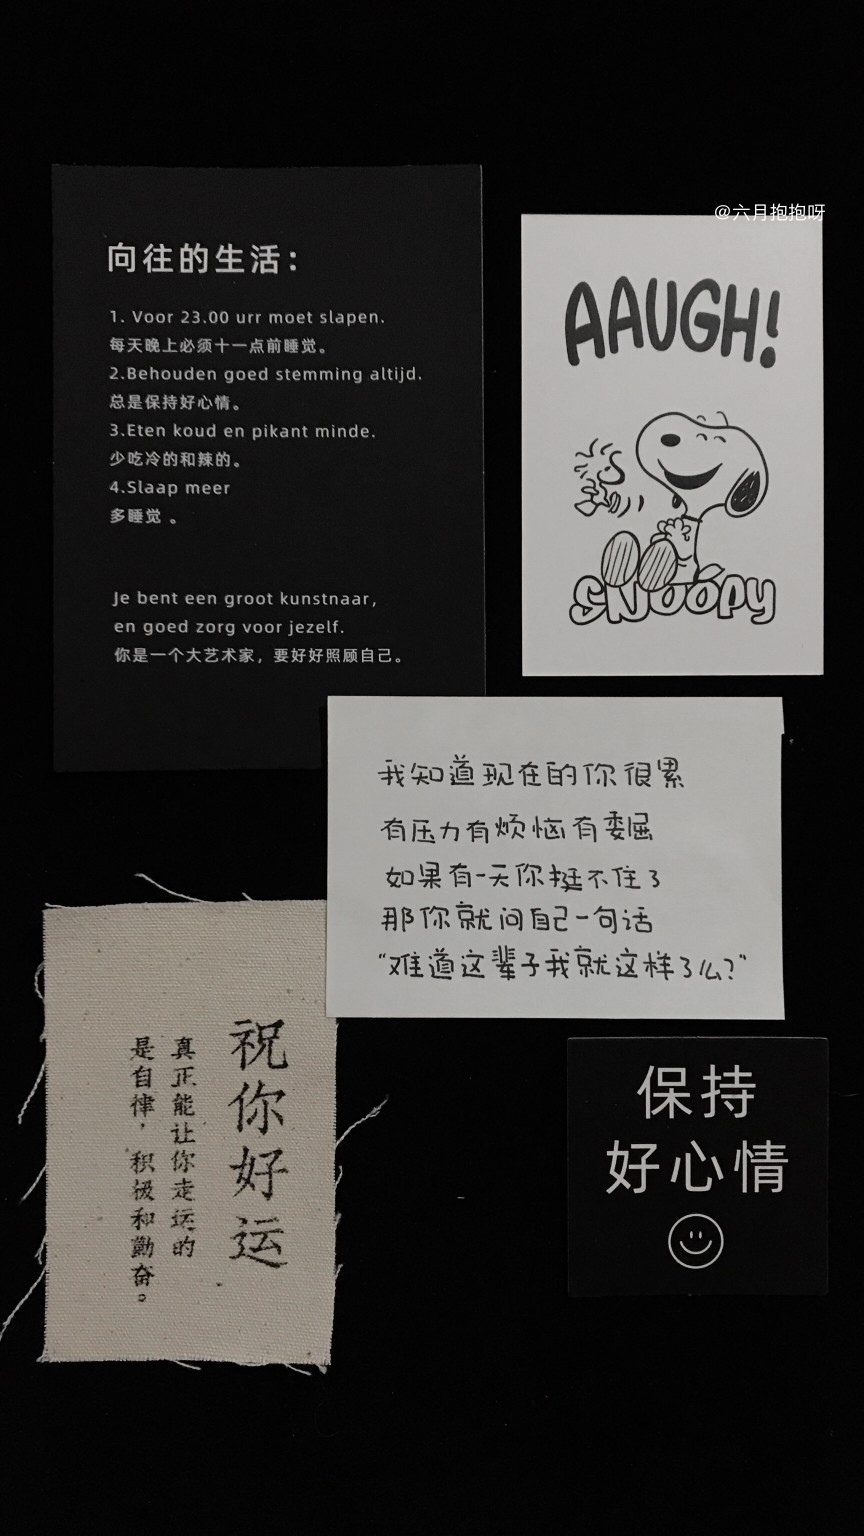 向往的生活：
1. Voor 23.00 urr moet slapen.
每天晚上必须十一点前睡觉。
2.Behouden goed stemming altijd.
总是保持好心情。
3.Eten koud en pikant minde.
少吃冷的和辣的。
4.Slaap meer
多睡觉 。
Je bent een groot kunstnaar,
en goed zorg voor jezelf.
你是一个大艺术家，要好好照顾自己。
@六月抱抱呀
AAUGH!
SNOOPY
我知道现在的你很累
有压力有烦恼有委屈
如果有一天你挺不住了
那你就问自己一句话
“难道这辈子我就这样了么?”
祝你好运
真正能让你走运的
是自律，积极和勤奋。
保持
好心情